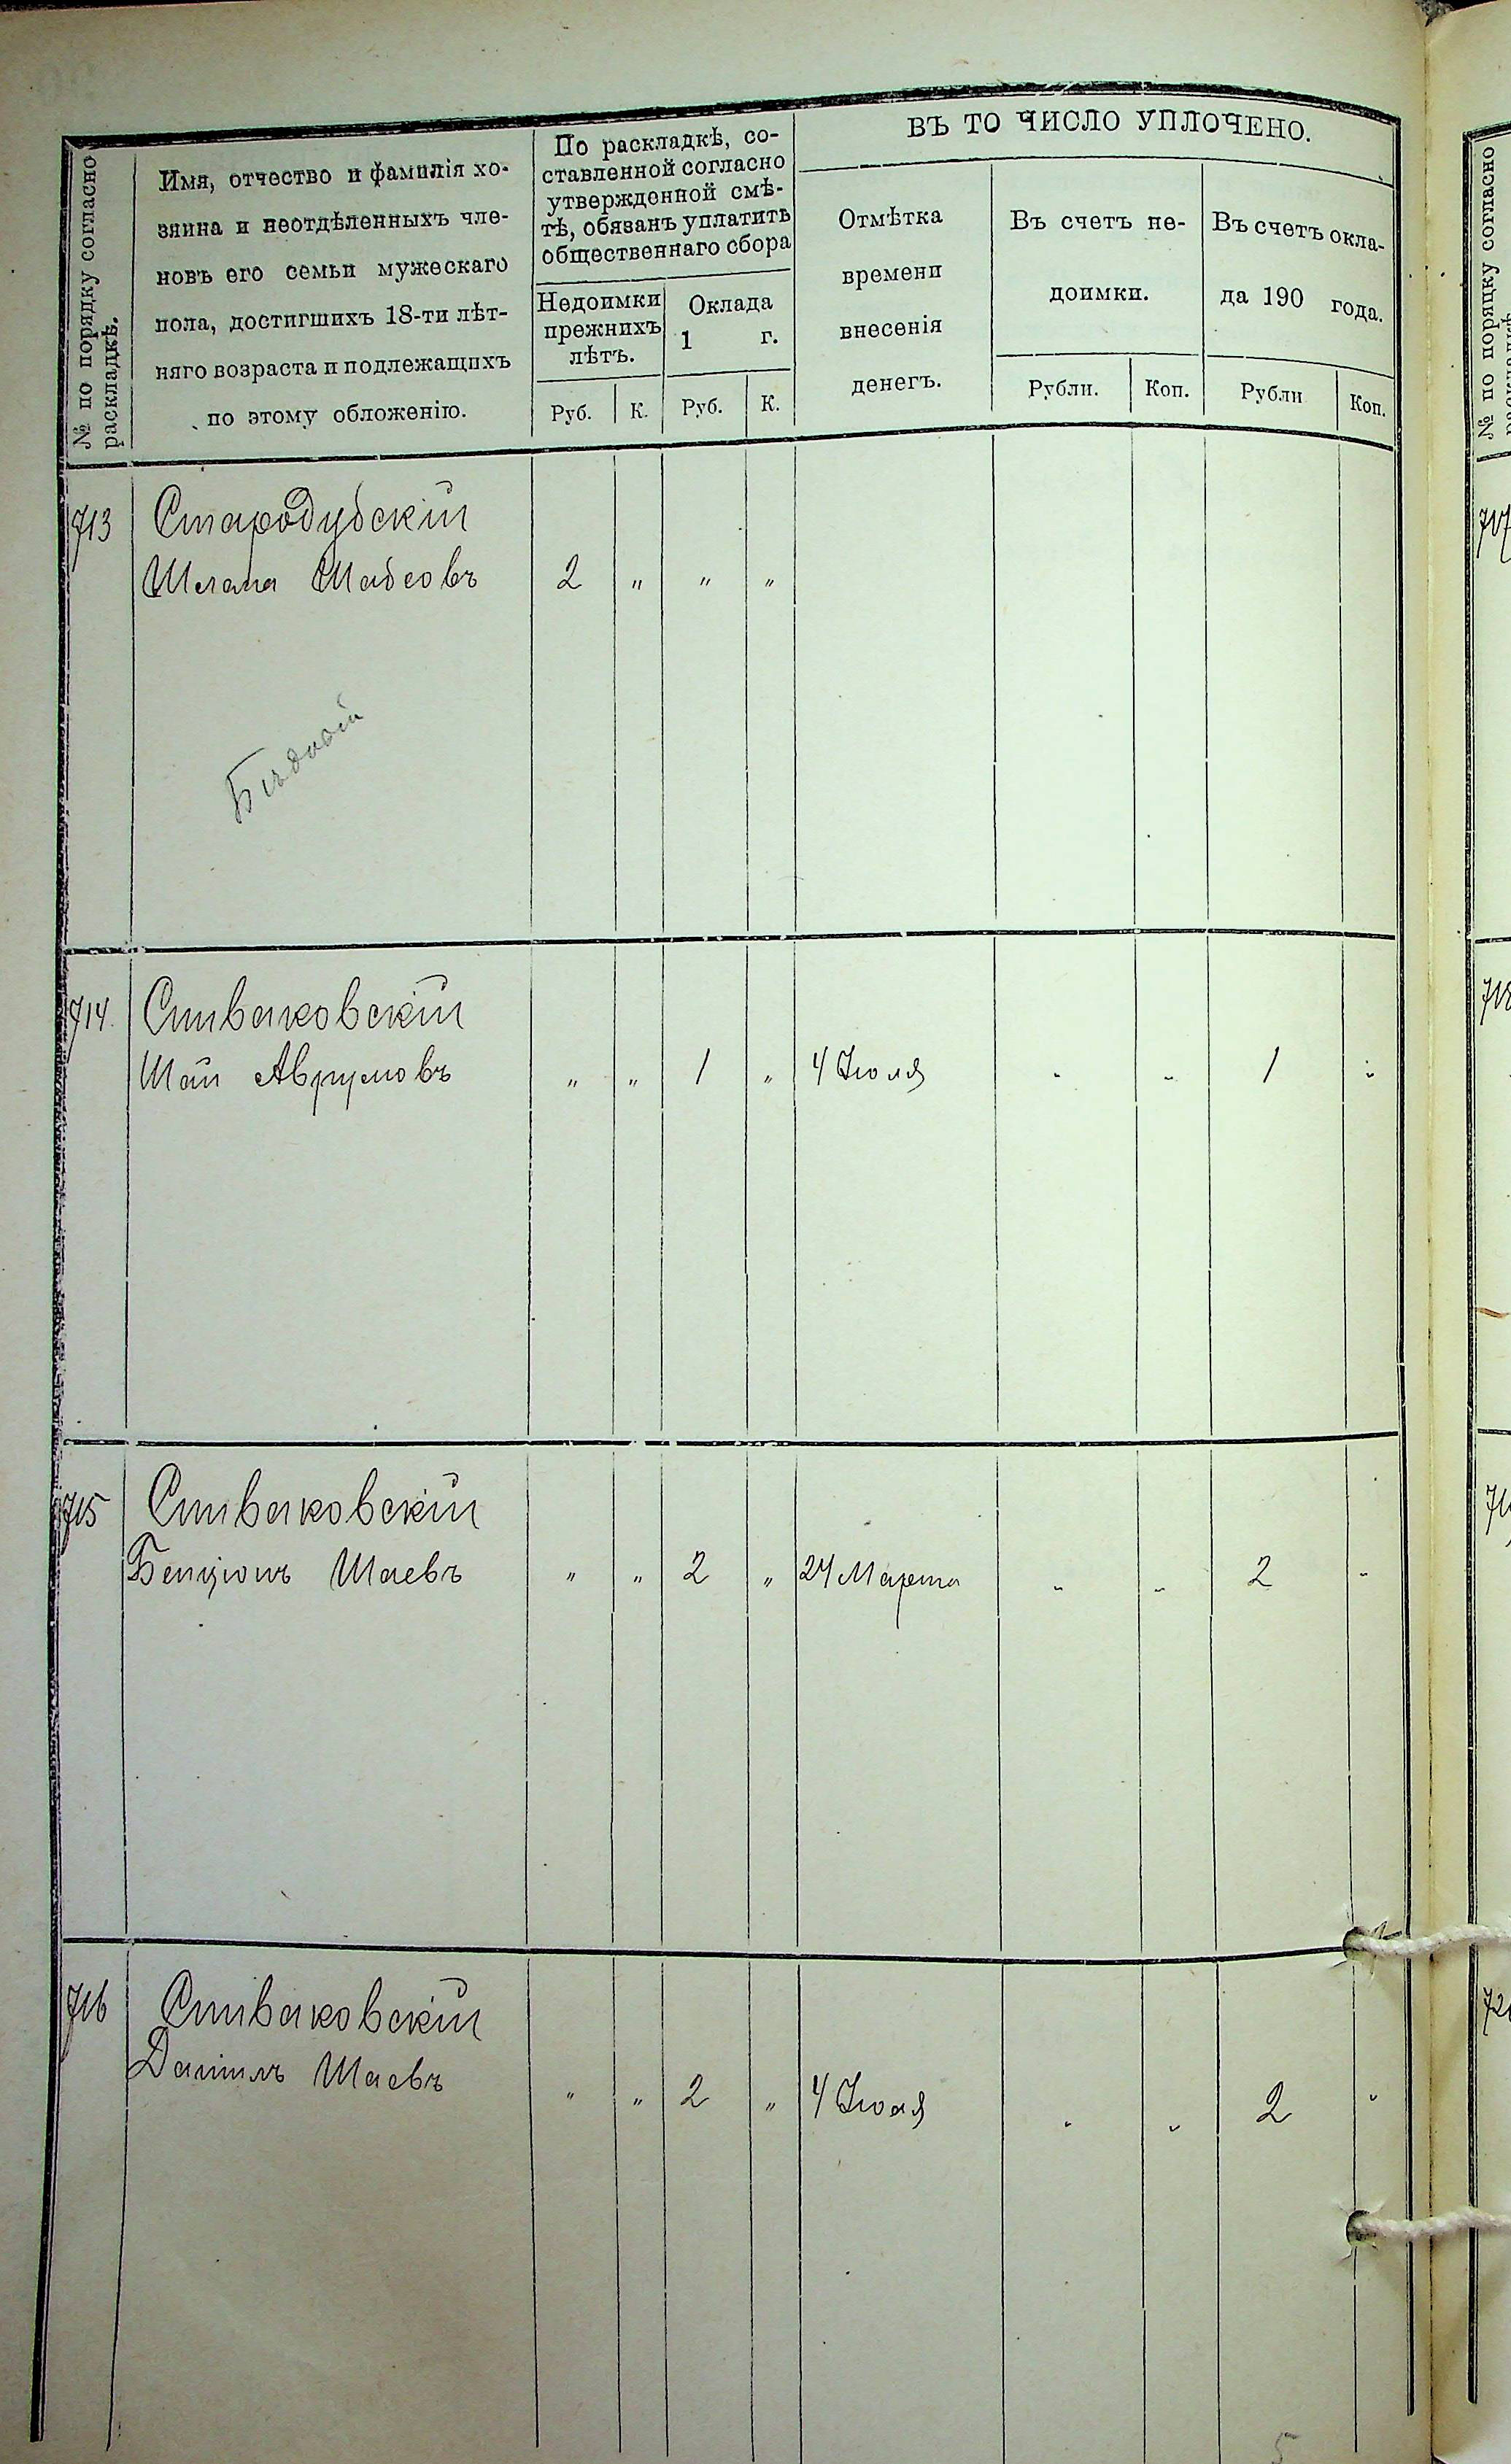 № по порядку согласно
раскладкѣ.
Имя, отчество и фамилія хо-
зяина и неотдѣленныхъ чле-
новъ его семьи мужескаго
пола, достигшихъ 18-ти лѣт-
няго возраста и подлежащихъ
по этому обложенію.
По раскладкѣ, со-
ставленной согласно
утвержденной смѣ-
тѣ, обязанъ уплатить
общественнаго сбора
Недоимки
прежнихъ
лѣтъ.
Оклада
1 г.
Руб. К. Руб. К.
ВЪ ТО ЧИСЛО УПЛОЧЕНО.
Отмѣтка
времени
внесенія
денегъ.
Въ счетъ не-
доимки.
Рубли. Коп.
Въ счетъ окла-
да 190 года.
Рубли Коп.
713 Стародубскій
Шабсовъ 2 " " "
Бѣдный
714. Спиваковскій
Шая Аврумовъ " " 1 " 4 Іюля " " 1 "
715 Спиваковскій
Бенціонъ Шаевъ " " 2 " 24 Марта " " 2 "
716 Спиваковскій
Даніилъ Шаевъ " " 2 " 4 Іюля " " 2 "
5
№ по порядку согласно
717
718